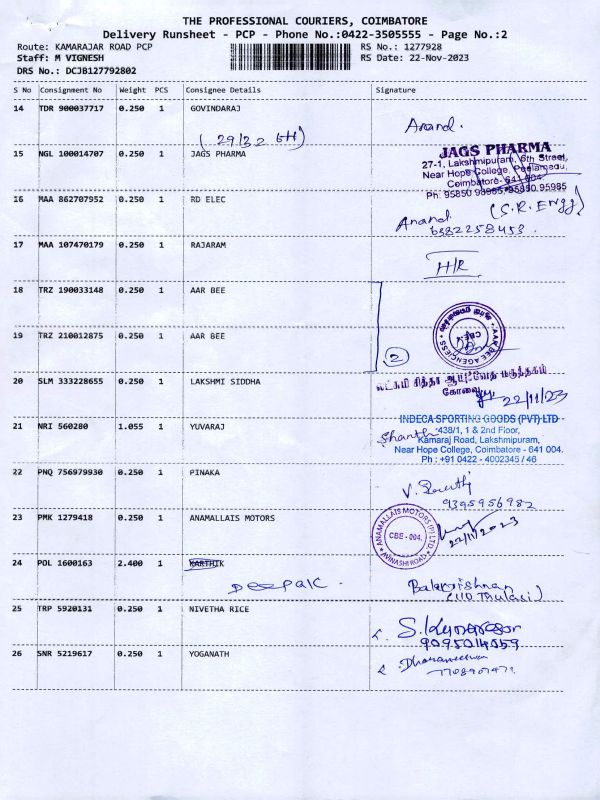 THE PROFESSIONAL COURIERS, COIMBATORE
Delivery Runsheet - PCP - Phone No.:0422-3505555 - Page No.:2
Route: KAMARAJAR ROAD PCP RS No.: 1277928
Staff: M VIGNESH RS Date: 22-Nov-2023
DRS No.: DCJB127792802
S No Consignment No Weight PCS Consignee Details Signature
14 TDR 900037717 0.250 1 GOVINDARAJ
Anand.
15 NGL 100014707 0.250 1 JAGS PHARMA
JAGS PHARMA
27-1, Lakshmipuram, 6th Street,
Near Hope College, Peelamedu,
Coimbatore- 641 004.
Ph: 95850 95985
16 MAA 862707952 0.250 1 RD ELEC
(S.R. Engg)
Anand
6382258453.
17 MAA 107470179 0.250 1 RAJARAM
H/R
18 TRZ 190033148 0.250 1 AAR BEE
AAR BEE AGENCIES
CBE
19 TRZ 210012875 0.250 1 AAR BEE
2
20 SLM 333228655 0.250 1 LAKSHMI SIDDHA
லட்சுமி சித்தா ஆயுர்வேத மருந்தகம்
கோவை
22/11/23
21 NRI 560280 1.055 1 YUVARAJ
INDECA SPORTING GOODS (PVT) LTD
438/1, 1 & 2nd Floor,
Shanth
Kamaraj Road, Lakshmipuram,
Near Hope College, Coimbatore - 641 004.
Ph : +91 0422 - 4002345 / 46
22 PNQ 756979930 0.250 1 PINAKA
9395956982
23 PMK 1279418 0.250 1 ANAMALLAIS MOTORS
ANAMALLAIS MOTORS (P) LTD.
CBE - 004.
AVINASHI ROAD
22/11/2023
24 POL 1600163 2.400 1 KARTHIK
Deepak.
Balakrishnan
25 TRP 5920131 0.250 1 NIVETHA RICE
9095014559
26 SNR 5219617 0.250 1 YOGANATH